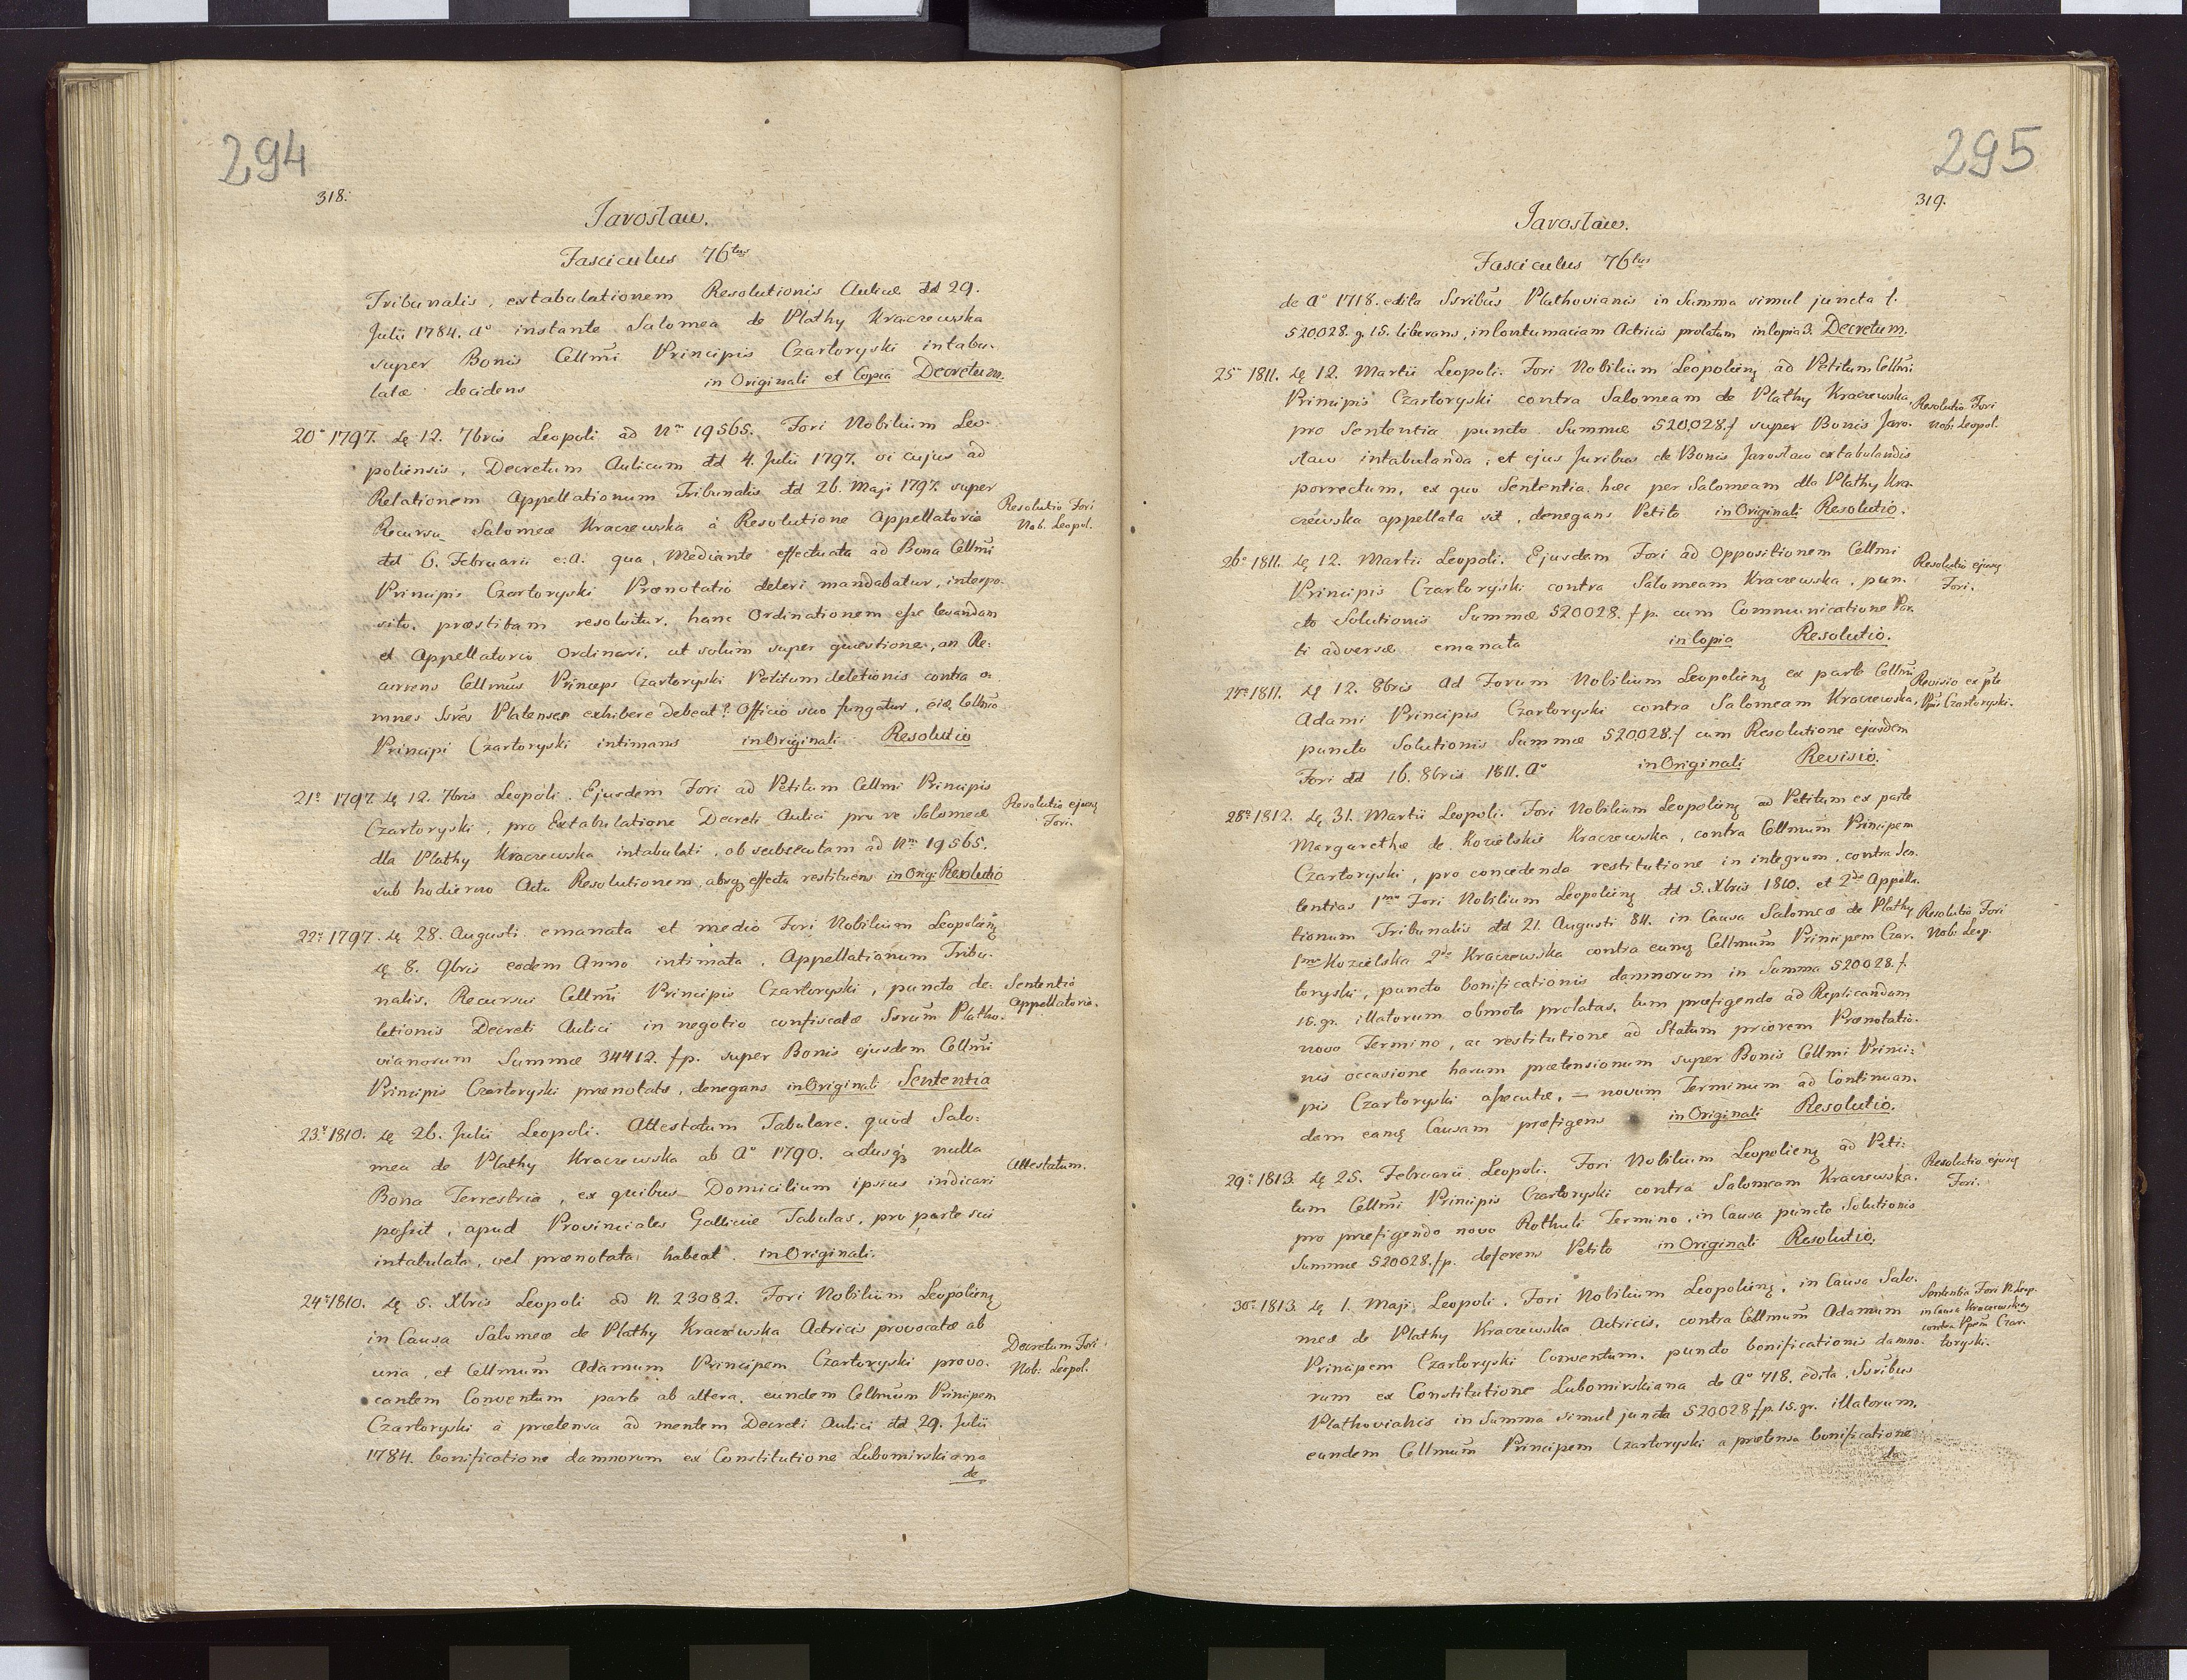 294
318.
Jaroslaw.
Fasciculus 76tus
Tribunalis, extabulationem Resolutionis Aulicæ dd 29.
Julii 1784. Ao instante Salomea de Plathy Kraczewska
super Bonis Cellmi Principis Czartoryski intabu-
latæ decidens in Originali et Copia Decretum.
20o 1797. Dę 12. 7bris Leopoli ad Nrm 19565. Fori Nobilium Leo-
poliensis, Decretum Aulicum dd 4. Julii 1797. vi cujus ad
Relationem Appellationum Tribunalis dd 26. Maji 1797. super
Resolutio Fori
Recursu Salomeæ Kraczewska à Resolutione Appellatoria
Nob. Leopol.
dd 6. Februarii e.a. qua, Mediante effectuata ad Bona Cellmi
Principis Czartoryski Prænotatio deleri mandabatur, interpo-
sito, præstitam resolvitur, hanc Ordinationem esse levandam
et Appellatorio Ordinari, ut solum super quæstione, an Re-
currens Cellmus Princeps Czartoryski Petitum deletionis contra o-
mnes Ssres Platenses exhibere debeat? Officio suo fungatur, Cellmo
Principi Czartoryski intimans in Originali Resolutio
21o 1797. Dę 12. 7bris Leopoli. Ejusdem Fori ad Petitum Cellmi Principis
Resolutio ejusq
Czartoryski, pro Extabulatione Decreti Aulici pro re Salomeæ
Fori.
dla Plathy Kraczewska intabulati, ob subsecutam ad Nrm 19565.
sub hodierno Actu Resolutionem, absq effectu restituens in Orig: Resolutio
22o 1797. Dę 28. Augusti emanata et medio Fori Nobilium Leopolienq
Dę 8. 9bris eodem Anno intimata, Appellationum Tribu-
nalis, Recursus Cellmi Principis Czartoryski, puncto de-
Sententia
letionis Decreti Aulici in negotio confiscatæ Ssrum Platho-
Appellatoria.
vianorum Summæ 34412. fp. super Bonis ejusdem Cellmi
Principis Czartoryski prænotatæ, denegans in Originali Sententia
23o 1810. Dę 26. Julii Leopoli. Attestatum Tabulare, quod Salo-
mea de Plathy Kraczewska ab Ao 1790. adusq nulla
Attestatum.
Bona Terrestria, ex quibus Domicilium ipsius indicari
possit, apud Provinciales Galliciæ Tabulas, pro parte sui
intabulata, vel prænotata habeat. in Originali.
24o 1810. Dę 5. Xbris Leopoli ad N. 23082. Fori Nobilium Leopolienq
in Causa Salomeæ de Plathy Kraczewska Actricis provocatæ ab
una, et Cellmum Adamum Principem Czartoryski provo-
Decretum Fori
Nob: Leopol.
cantem Conventum parte ab altera, eundem Cellmum Principem
Czartoryski à prætensa ad mentem Decreti Aulici dd 29. Julii
1784. bonificatione damnorum ex Constitutione Lubomirskiana
de
295
319.
Jaroslaw.
Fasciculus 76tus
de Ao 1718. edita Ssribus Plathovianis in Summa simul juncta f.
520028. g. 15. liberans, in Contumaciam Actricis prolatum in Copia 3. Decretum.
25o 1811. Dę 12. Martii Leopoli. Fori Nobilium Leopolienq ad Petitum Cellmi
Principis Czartoryski contra Salomeam de Plathy Kraczewska,
Resolutio Fori
pro Sententia puncto Summæ 520028. f super Bonis Jaro-
Nob: Leopol.
slaw intabulanda, et ejus Juribus de Bonis Jaroslaw extabulandis
porrectum, ex quo Sententia hæc per Salomeam dla Plathy Kra-
czewska appellata sit, denegans Petito in Originali Resolutio.
26o 1811. Dę 12. Martii Leopoli. Ejusdem Fori ad Oppositionem Cellmi
Resolutio ejusq
Principis Czartoryski contra Salomeam Kraczewska, pun-
Fori.
cto Solutionis Summæ 520028. fp. cum Communicatione Par-
ti adversæ emanata in Copia Resolutio.
27o 1811. Dę 12. 8bris Ad Forum Nobilium Leopolienq ex parte Cellmi
Revisio ex pte
Adami Principis Czartoryski contra Salomeam Kraczewska,
Ppis Czartoryski.
puncto Solutionis Summæ 520028. f cum Resolutione ejusdem
Fori dd 16. 8bris 1811. Ao in Originali Revisio.
28o 1812. Dę 31. Martii Leopoli. Fori Nobilium Leopolienq ad Petitum ex parte
Margarethæ de Kozielskie Kraczewska, contra Cellmum Principem
Czartoryski, pro concedenda restitutione in integrum, contra Sen-
tentias 1mo Fori Nobilium Leopolienq dd 5. Xbris 1810. et 2do Appella-
tionum Tribunalis dd 21. Augusti 84. in Causa Salomeæ de Plathy
Resolutio Fori
1mo Kozielska 2do Kraczewska contra eumq Cellmum Principem Czar-
Nob: Leop.
toryski, puncto bonificationis damnorum in Summa 520028. f.
15. gr. illatorum obmota prolatas, tum præfigendo ad Replicandam
novo Termino, ac restitutione ad Statum priorem Prænotatio-
nis occasione harum prætensionum super Bonis Cellmi Princi-
pis Czartoryski assecutæ, – novum Terminum ad Continuan-
dam eamq Causam præfigens in Originali Resolutio.
29o 1813. Dę 25. Februarii Leopoli. Fori Nobilium Leopolienq ad Peti-
Resolutio ejusq
tum Cellmi Principis Czartoryski contra Salomeam Kraczewska,
Fori.
pro præfigendo novo Rothuli Termino, in Causa puncto Solutionis
Summæ 520028. fp. deferens Petito in Originali Resolutio.
30o 1813. Dę 1. Maji Leopoli. Fori Nobilium Leopolienq, in Causa Salo-
Sententia Fori N. Leop.
meæ de Plathy Kraczewska Actricis, contra Cellmum Adamum
in Causa Kraczewska
contra Ppem Czar-
Principem Czartoryski Conventum, puncto bonificationis damno-
toryski.
rum ex Constitutione Lubomirskiana de Ao 718. edita, Ssribus
Plathovianis in Summa simul juncta 520028 fp. 15. gr. illatorum,
eundem Cellmum Principem Czartoryski a prætensa bonificatione
da-